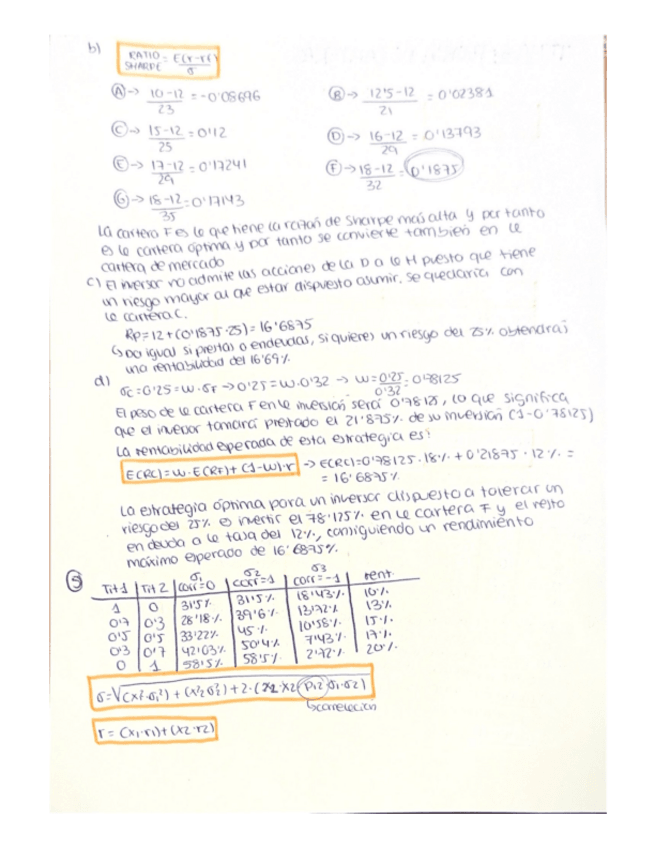 b) RATIO SHARPE = E(r-rf) / σ
Ⓐ→ 10-12 / 23 = -0'08696
Ⓑ→ 12'5-12 / 21 = 0'02381
Ⓒ→ 15-12 / 25 = 0'12
Ⓓ→ 16-12 / 29 = 0'13793
Ⓔ→ 17-12 / 29 = 0'17241
Ⓕ→ 18-12 / 32 = 0'1875
Ⓖ→ 18-12 / 35 = 0'17143
La cartera F es la que tiene la razón de Sharpe más alta y por tanto
es la cartera óptima y por tanto se convierte también en la
cartera de mercado
c) El inversor no admite las acciones de la D a la H puesto que tiene
un riesgo mayor al que estar dispuesto asumir. se quedaría con
la cartera C.
Rp=12+(0'1875·25)=16'6875
↳ no igual si prestas o endeudas, si quieres un riesgo del 25% obtendrás
una rentabilidad del 16'69%
d) σc=0'25=w·σF→0'25=w·0'32 → w=0'25/0'32=0'78125
El peso de la cartera F en la inversión será 0'78125, lo que significa
que el inversor tomará prestado el 21'875% de su inversión (1-0'78125)
La rentabilidad esperada de esta estrategia es:
E(RC)=w·E(RF)+(1-w)·r → E(RC)=0'78125·18%+0'21875·12% =
= 16'6875%
La estrategia óptima para un inversor dispuesto a tolerar un
riesgo del 25% es invertir el 78'125% en la cartera F y el resto
en deuda a la tasa del 12%, consiguiendo un rendimiento
máximo esperado de 16'6875%.
⑤ Tit1 | Tit2 | σ1 corr=0 | σ2 corr=1 | σ3 corr=-1 | rent.
1 | 0 | 31'5% | 31'5% | 18'43% | 10%
0'7 | 0'3 | 28'18% | 39'6% | 13'72% | 13%
0'5 | 0'5 | 33'22% | 45% | 10'58% | 15%
0'3 | 0'7 | 42'03% | 50'4% | 7'43% | 17%
0 | 1 | 58'5% | 58'5% | 2'72% | 20%
σ=√(x1²·σ1²)+(x2²·σ2²)+2·(x1·x2·ρ1,2·σ1·σ2)
↳correlación
r = (x1·r1)+(x2·r2)